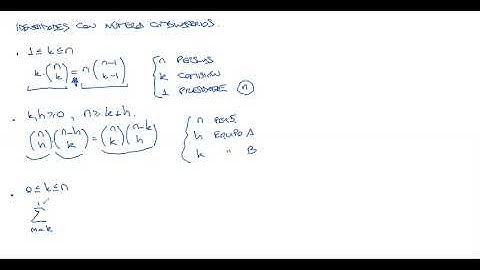 IDENTIDADES CON NÚMEROS COMBINATORIOS.
• 1 ≤ k ≤ n
k·(n k) = n(n-1 k-1)
{ n PERSONAS
k COMISIÓN
1 PRESIDENTE (n)
• k,h ≥ 0, n ≥ k+h.
(n h)(n-h k) = (n k)(n-k h)
{ n PERS.
h EQUIPO A
k " B
• 0 ≤ k ≤ n
Σ
m=k